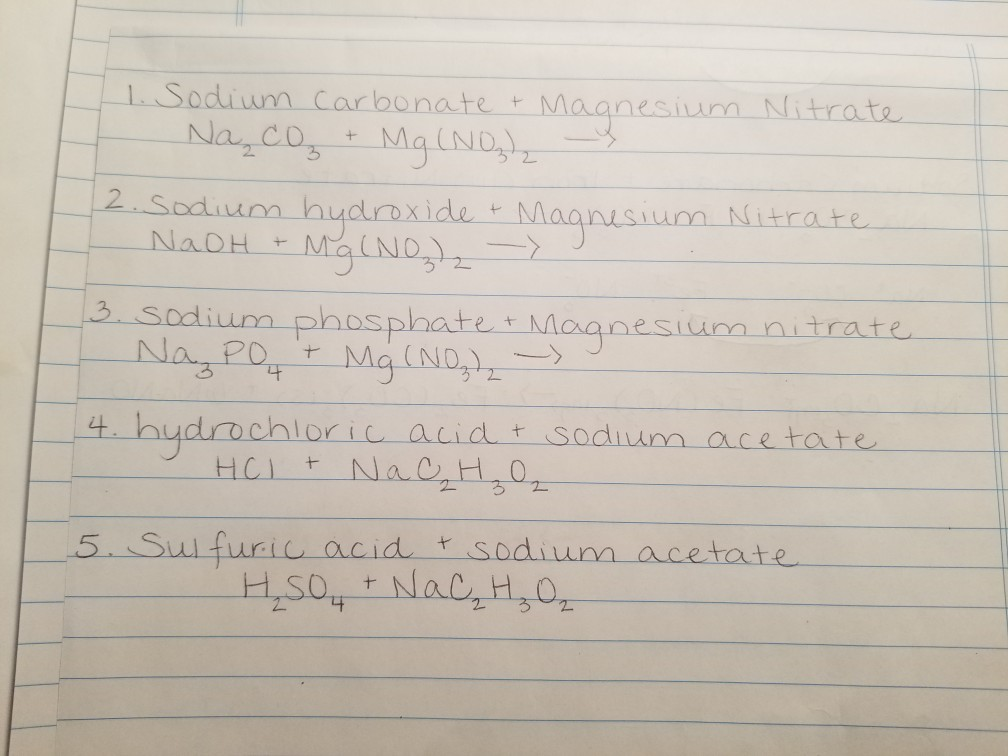 1. Sodium Carbonate + Magnesium Nitrate
Na₂CO₃ + Mg(NO₃)₂ →
2. Sodium hydroxide + Magnesium Nitrate
NaOH + Mg(NO₃)₂ →
3. Sodium phosphate + Magnesium nitrate
Na₃PO₄ + Mg(NO₃)₂ →
4. hydrochloric acid + sodium acetate
HCl + NaC₂H₃O₂
5. Sulfuric acid + sodium acetate
H₂SO₄ + NaC₂H₃O₂